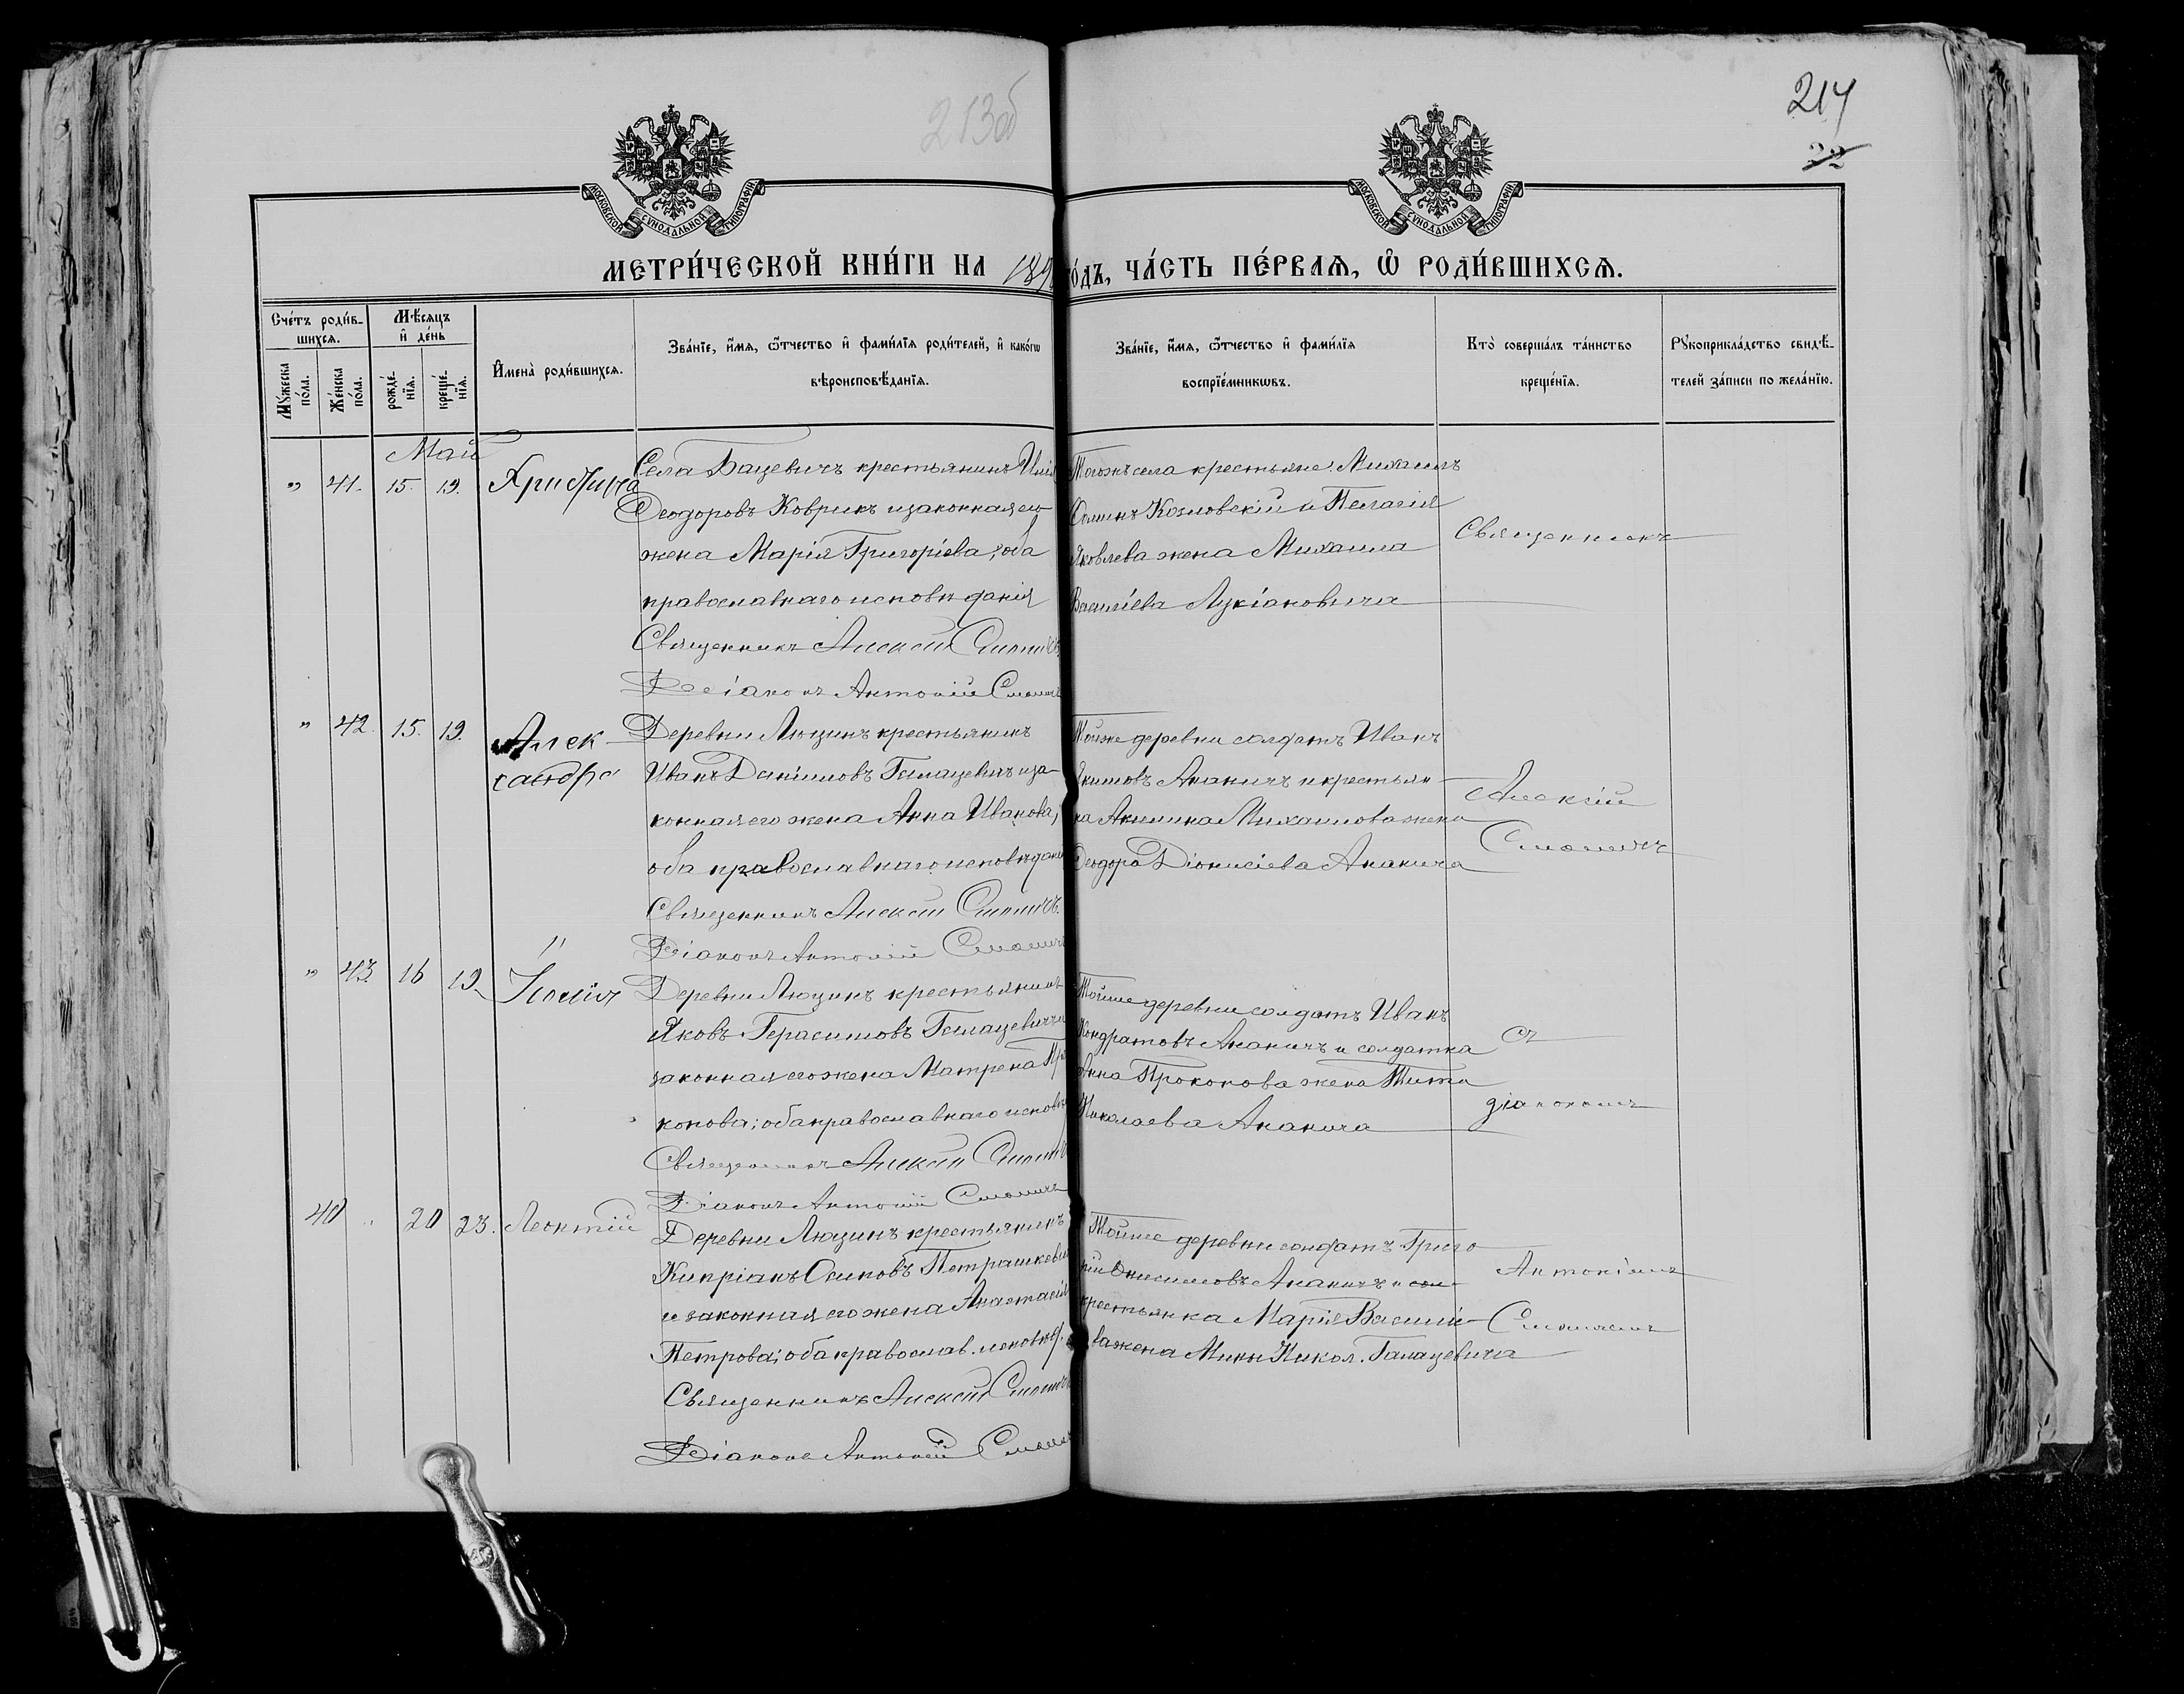 213об
214
22
МОСКОВСКОЙ СѴНОДАЛЬНОЙ ТИПОГРАФІИ
МОСКОВСКОЙ СѴНОДАЛЬНОЙ ТИПОГРАФІИ
МЕТРИ́ЧЕСКОЙ КНИ́ГИ НА 189
О́ДЪ, ЧА́СТЬ ПЕ́РВАѦ, Ѡ҆ РОДИ́ВШИХСѦ.
Сче́тъ роди́в-
шихсѧ.
Мꙋ́жеска по́ла.
Же́нска по́ла.
Мѣ́сѧцъ
и҆ де́нь
рожде́-
нїѧ.
креще́-
нїѧ.
И҆мена̀ роди́вшихсѧ.
Зва́нїе, и҆́мѧ, ѻ҆́тчество и҆ фами́лїѧ роди́телей, и҆ како́гѡ
вѣроисповѣ́данїѧ.
Зва́нїе, и҆́мѧ, ѻ҆́тчество и҆ фами́лїѧ
воспрїе́мникѡвъ.
Кто̀ соверша́лъ та́инство
креще́нїѧ.
Рꙋкоприкла́дство свидѣ́-
телей за́писи по жела́нїю.
Май
" 41. 15. 19. Христина
Села Бацевичъ крестьянинъ Илія
Ѳеодоровъ Коврикъ и законная его
жена Марія Григоріева, оба
православнаго исповѣданія
Священникъ Алексій Смоличъ
Діаконъ Антоній Смоличъ
Тогожъ села крестьяне Михаилъ
Козловскій и Пелагія
Яковлева жена Михаила
Василіева Лукіановича
Священникъ
" 42. 15. 19. Алек-
сандра
Деревни Люзинъ крестьянинъ
Иванъ Даніиловъ Гамацевичъ и за-
конная его жена Анна Иванова,
оба православнаго исповѣдані
Священникъ Алексій Смоличъ.
Діаконъ Антоній Смоличъ
Тойже деревни солдатъ Иванъ
Акимовъ Ананичъ и крестьян-
ка Акилина Михаилова жена
Ѳеодора Діонисіева Ананича
Алексій
Смоличъ
" 43. 16 19.
Деревни Люзинъ крестьянинъ
Яковъ Герасимовъ Гамацевичъ и
законная его жена Матрена Про
конова; оба православнаго исповѣ
Священникъ Алексій Смоличъ
Діаконъ Антоній Смоличъ
Тойже деревни солдатъ Иванъ
Кондратовъ Ананичъ и солдатка
Анна Прокопова жена Тита
Николаева Ананича
съ
діакономъ
40 . 20 23. Леонтій
Деревни Люзинъ крестьянинъ
Кипріанъ Осиповъ Петрашкеви
и законная его жена Анастасія
Петрова; оба православ. исповѣд.
Священникъ Алексій Смоличъ
Діаконъ Антоній Смоличъ
Тойже деревни солдатъ Григо
рій Онисимовъ Ананичъ и сол-
крестьянка Марія Василіе-
ва жена Мины Никол. Гамацевича
Антоніемъ
Смоличемъ